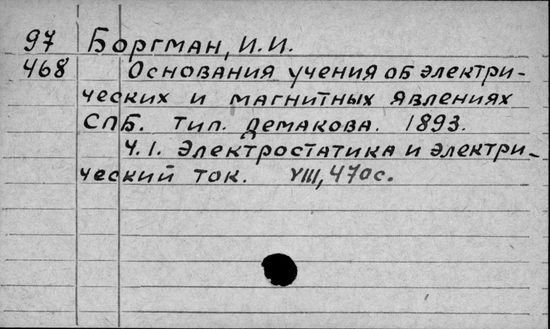 97 Боргман, И.И.
468 Основания учения об электри-
ческих и магнитных явлениях
СПБ. тип. Демакова. 1893.
Ч.I. Электростатика и электри-
ческий ток. VIII, 470с.